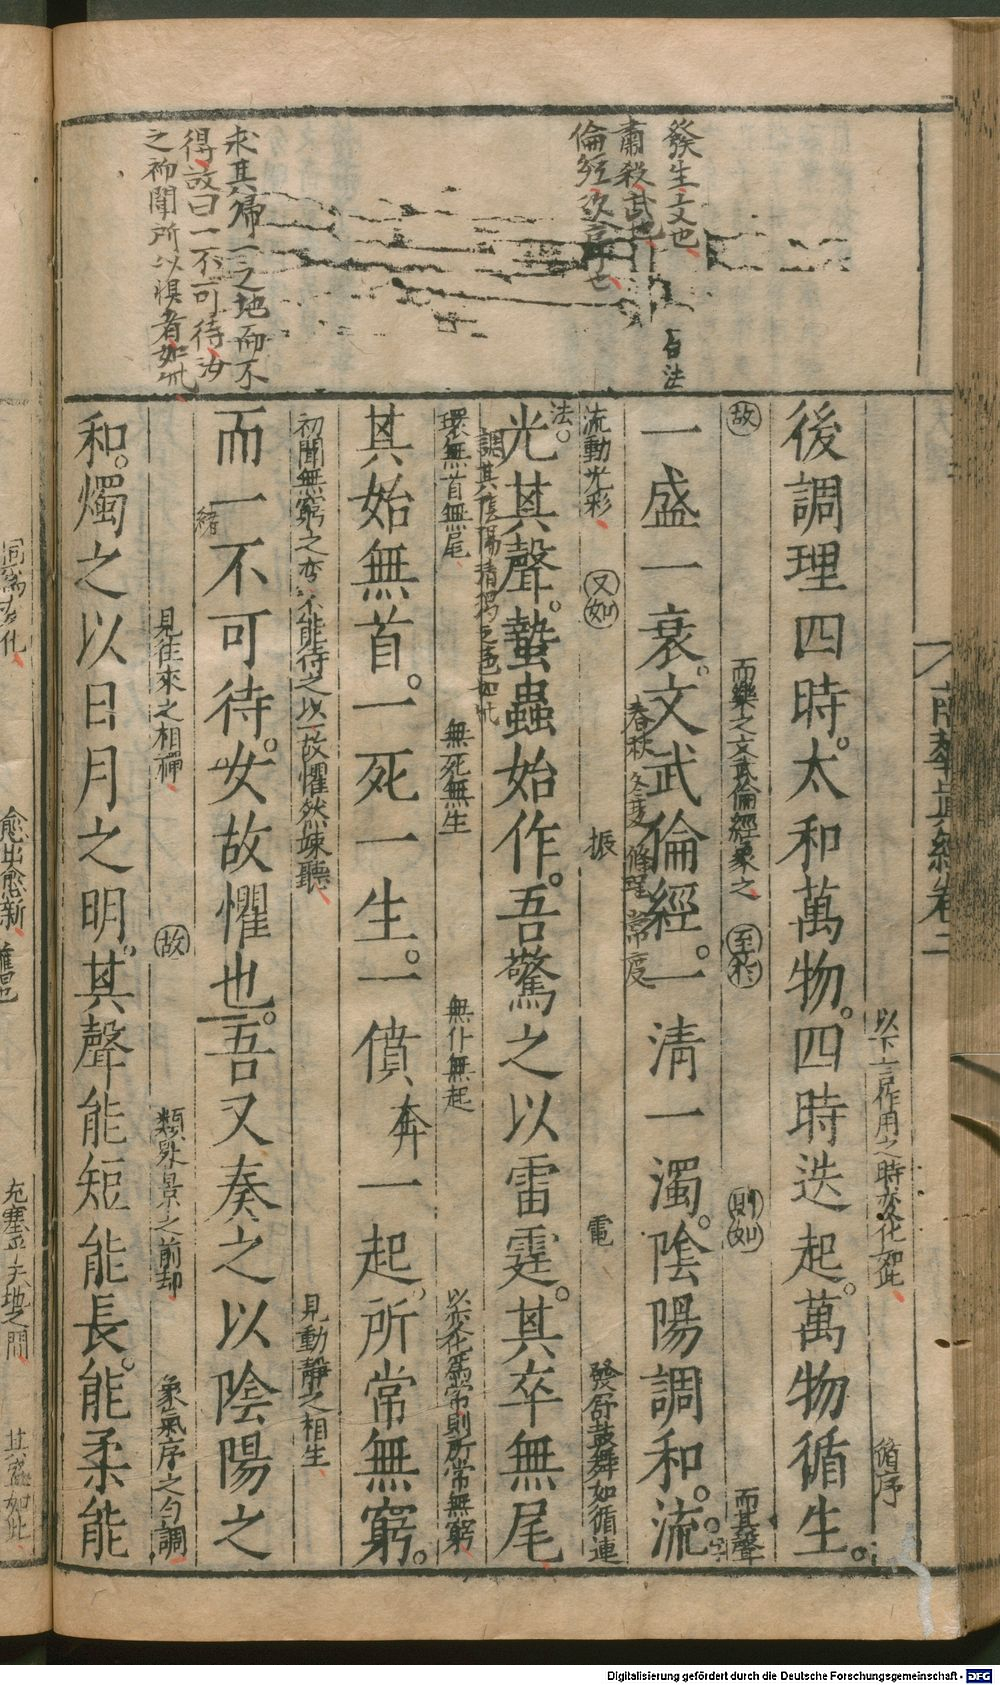 發生文也
肅殺武也
倫經次序也
求其歸一之地而不
得故曰一不可待汝
之初聞所以懼者如此
南華眞經卷二
以下言作用之時變化如此
循序
後調理四時。太和萬物。四時迭起。萬物循生。
故
而樂之文武倫經象之
至於
則如
而其聲
一盛一衰。文武倫經。一清一濁。陰陽調和。流
春秋冬夏
條理
常度
流動光彩
又如
振
電
發舒鼓舞如循連
法。
光其聲。蟄蟲始作。吾驚之以雷霆。其卒無尾
調其陰陽清濁之色如此
環無首無尾
無死無生
無仆無起
以變化爲常則所常無窮
其始無首。一死一生。一僨奔一起。所常無窮。
初聞無窮之変不能待之以一故懼然竦聽
見動靜之相生
而一不可待。女故懼也。吾又奏之以陰陽之
緒
見往來之相禪
故
類晷景之前却
象氣序之勻調
和。燭之以日月之明。其聲能短能長。能柔能
愈出愈新
充塞乎天地之間
Digitalisierung gefördert durch die Deutsche Forschungsgemeinschaft - DFG